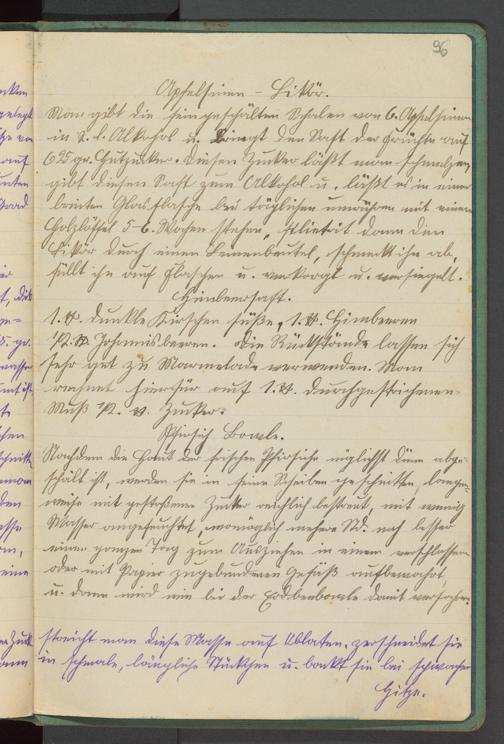 96
Apfelsinen-Likör.
Man gibt die fein geschälten Schalen von 6. Apfelsinen
in 2. l. Alkohol u. bringt den Saft der Früchte auf
625 gr. Hutzucker. Diesen Zucker läßt man schmelzen,
gibt diesen Saft zum Alkohol u. läßt es in einer
breiten Glasflasche bei täglichen umrühren mit einem
Holzlöffel 5-6. Wochen stehen, filtriert dann den
Likör durch einen Leinenbeutel, schmeckt ihn ab,
füllt ihn auf Flaschen u. verkorgt u. versiegelt.
Himbeersaft.
1. ℔. dunkle Kirschen süße, 1. ℔. Himbeeren
1/2. ℔ Johannisbeeren. Die Rückstände lassen sich
sehr gut zu Marmelade verwenden. Man
rechnet hierfür auf 1. ℔. durchgestrichenen
Muß 1/2. ℔. Zucker.
Pfirsich Bowle.
Nachdem die Haut der frischen Pfirsiche möglichst dünn abge-
schält ist, werden sie in feine Scheiben geschnitten, lagen-
weise mit gestoßenem Zucker reichlich bestreut, mit wenig
Wasser angefeuchtet, womöglich mehrere Std. noch besser
einen ganzen Tag zum Ausziehen in einem verschlossen
oder mit Papier zugebundenen Gefäß aufbewahrt
u. dann wird wie bei der Erdbeerbowle damit verfahren.
streicht man diese Masse auf Oblaten, zerschneidet sie
in schmale, längliche Stückchen u. backt sie bei schwacher
Hitze.